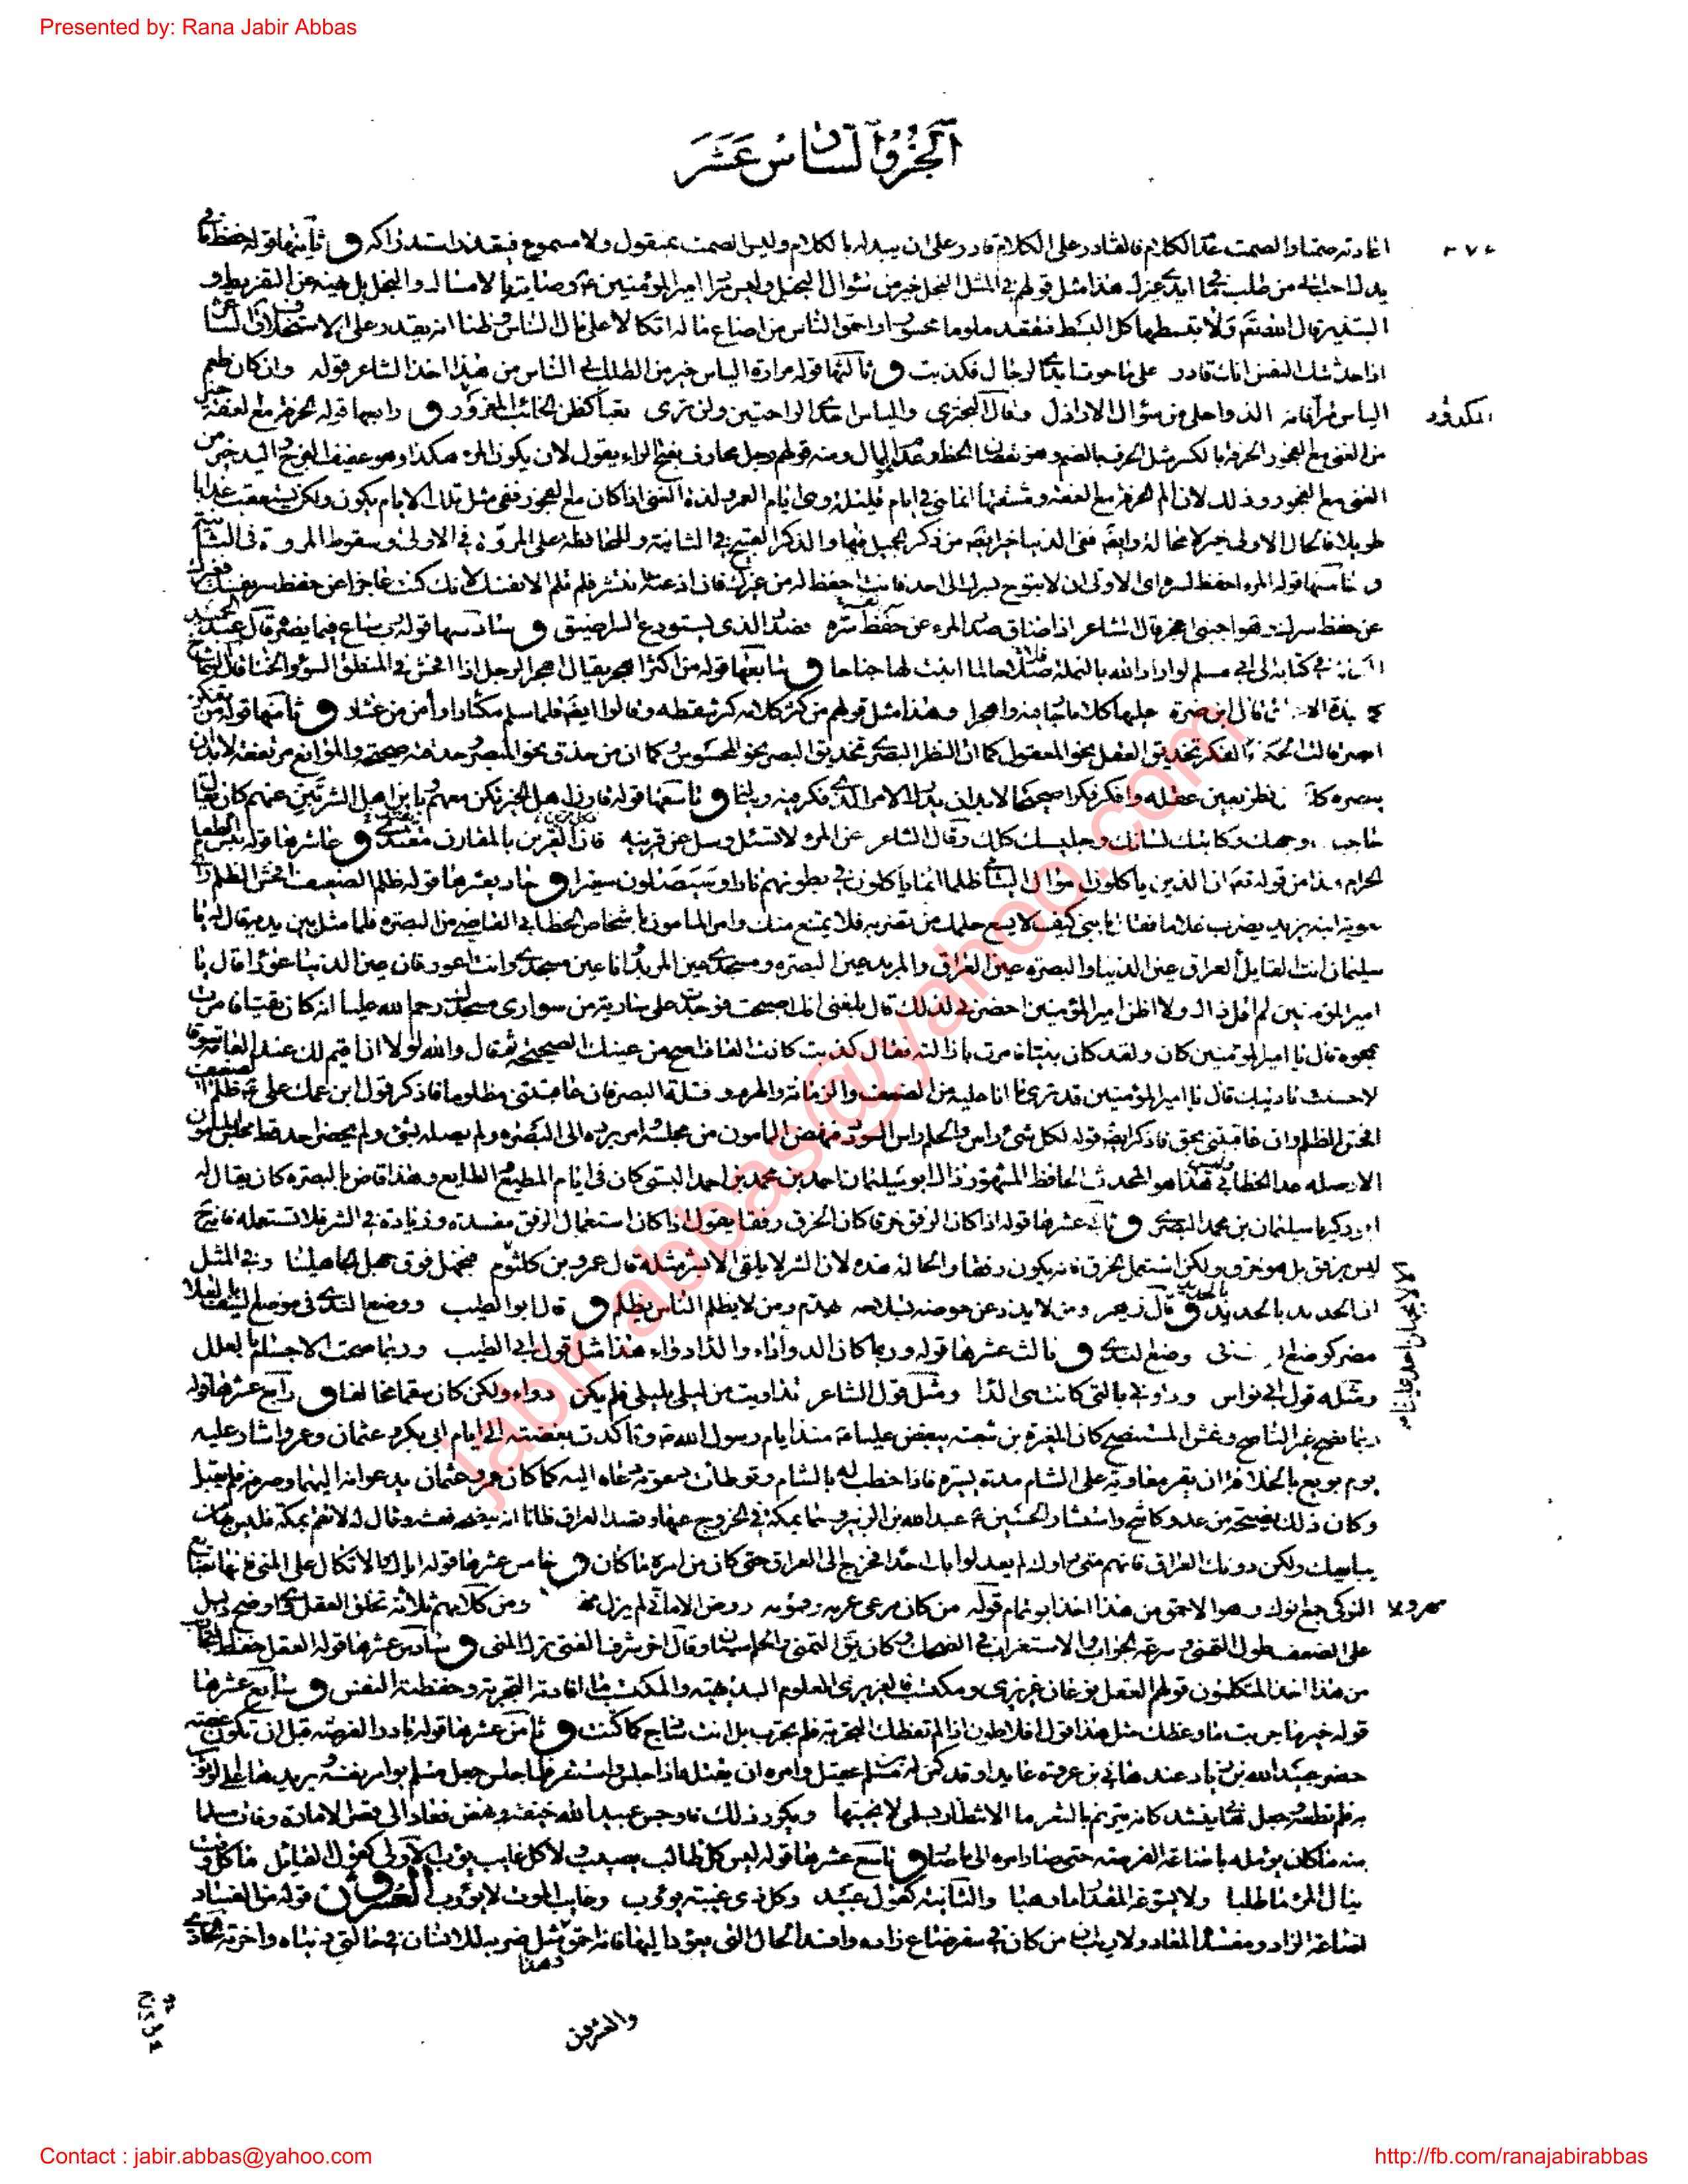 Presented by: Rana Jabir Abbas
الجزو السادس عشر
٣٧٤
اعادته صمتا والصمت عدم الكلام فالقادر على الكلام قادر على ان يبدله بالكلام وليس الصمت بمنقول ولا مسموع فيتعذر استدراكه و ثانيها قوله حفظ ما في
يديك احب الي من طلب ما في ايدي غيرك هذا مثل قولهم في المثل البخل خير من سؤال البخيل وليس مراد امير المؤمنين ع وصايته بالامساك والبخل بل نهيه عن التفريط و
التبذير قال الله تعم ولا تبسطها كل البسط فتقعد ملوما محسورا واحمق الناس من اضاع ماله اتكالا على مال الناس وظنا انه يقدر على الاستخلاف قال الشاعر
اذا حدثتك النفس انك قادر على ما حوت ايدي الرجال فكذب و ثالثها قوله مرارة الياس خير من الطلب الى الناس من هذا اخذ الشاعر قوله وان كان طعم
الياس مرا فانه الذ واحلى من سؤال الاراذل وقال البحتري والياس احدى الراحتين ولن ترى تعبا كظن الخائب المغرور و رابعها قوله الحرفة مع العفة خير
المكدود
من الغنى مع الفجور الحرفة بالكسر مثل الحرف بالضم وهو نقصان الحظ وعدم المال ومنه قولهم رجل محارف بفتح الراء يقول لان يكون المرء هكذا وهو عفيف الفرج واليد خير من
الغنى مع الفجور وذلك لان الم الحرفة مع العفة ومشقتها انما هي في ايام قليلة وهي ايام العمر ولذة الغنى اذا كان مع الفجور ففي مثل تلك الايام يكون ولكن يستعقب عذابا
طويلا فالحال الاولى خير لا محالة وايضا ففي الدنيا خير ايضا من ذكر الجميل فيها والذكر القبيح في الثانية والمحافظة على المروة في الاولى وسقوط المروة في الثانية
و خامسها قوله المرء احفظ لسره اي الاولى ان لا يبوح بسرك الى احد فانت احفظ له من غيرك فان اذعته فانتشر فلا تلم الا نفسك لانك كنت عاجزا عن حفظ سر نفسك فغيرك
عن حفظ سرك وهو اجنبي اعجز قال الشاعر اذا ضاق صدر المرء عن حفظ سره فصدر الذي يستودع السر اضيق و سادسها قوله رب ساع فيما يضره قال عبد الحميد
في كتابه الى ابي مسلم لو اراد الله بالنملة صلاحا لما انبت لها جناحا و سابعها قوله من اكثر اهجر يقال اهجر الرجل اذا افحش في المنطق السوء والخنا قال الشماخ
قال ابن ضرة عليها كلاما جار فيه واهجرا وهذا مثل قولهم من كثر كلامه كثر سقطه وقالوا ايضا قلما سلم مكثار او امن من عثار و ثامنها قوله من تفكر
ابصر قالت الحكماء الفكر تحديق العقل نحو المعقول كما ان النظر البصري تحديق البصر نحو المحسوس وكما ان من حدق نحو المبصر وحدقته صحيحة والموانع مرتفعة لا بد ان
يبصره كذلك من نظر بعين عقله وافكر فكرا صحيحا لا بد ان يدرك الامر الذي فكر فيه ويناله و تاسعها قوله قارن اهل الخير تكن معهم وباين اهل الشر تبن عنهم كان يقال
حاجبك وجهك وكاتبك لسانك وجليسك كلك وقال الشاعر عن المرء لا تسئل وسل عن قرينه فكل قرين بالمقارن مقتدي و عاشرها قوله بئس الطعام
الحرام هذا من قوله تعم ان الذين ياكلون اموال اليتامى ظلما انما ياكلون في بطونهم نارا وسيصلون سعيرا و حادي عشرها قوله ظلم الضعيف افحش الظلم راى
معوية ابنه يزيد يضرب غلاما فقال يا بني كيف لا يسع حلمك من تضربه فلا يمتنع منك وامر المامون باشخاص الخطابي القاضي من البصرة فلما مثل بين يديه قال له يا
سليمان انت القايل العراق عين الدنيا والبصرة عين العراق والمربد عين البصرة ومسجدي عين المربد وانا عين مسجدي وانت اعور فان عين الدنيا عوراء قال يا
امير المؤمنين لم اقل ذاك ولا اظن امير المؤمنين احضرني لذلك قال بلغني انك اصبحت فوجدت على سارية من سواري مسجدك رحم الله عليا انه كان تقيا فامرت
بمحوه قال يا امير المؤمنين كان ولقد كان نبيا فامرت بازالته فقال كذبت كانت القاف اصح من عينك الصحيحة ثم قال والله لولا ان اقيم لك عند العامة سوقا
لاحسنت تاديبك قال يا امير المؤمنين قد ترى ما انا عليه من الضعف والزمانة والهرم وقلة البصر فان عاقبتني مظلوما فاذكر قول ابن عمك علي ع ظلم الضعيف
افحش الظلم وان عاقبتني بحق فاذكر ايضا قوله لكل شئ راس والحلم راس السودد فنهض المامون من مجلسه وامر برده الى البصرة ولم يصله بشئ ولم يحضر احد قط مجلس المامون
الا وصله عدا الخطابي وليس هذا هو المحدث الحافظ المشهور ذاك ابو سليمان احمد بن محمد بن احمد البستي كان في ايام المطيع والطايع وهذا قاض بالبصرة كان يقال له
ابو زكريا سليمان بن محمد البصري و ثاني عشرها قوله اذا كان الرفق خرقا كان الخرق رفقا يقول اذا كان استعمال الرفق مفسدة وزيادة في الشر فلا تستعمله فانه حينئذ
ليس برفق بل هو خرق ولكن استعمل الخرق فانه يكون رفقا والحالة هذه لان الشر لا يلقى الا بشر مثله قال عمرو بن كلثوم فنجهل فوق جهل الجاهلينا وفي المثل
الا لا يجهلن احد علينا
ان الحديد بالحديد يفلح و قال زهير ومن لا يذد عن حوضه بسلاحه يهدم ومن لا يظلم الناس يظلم و قال ابو الطيب ووضع الندى في موضع السيف بالعلا
مضر كوضع السيف في موضع الندى و ثالث عشرها قوله وربما كان الدواء داء والداء دواء هذا مثل قول ابي الطيب وربما صحت الاجسام بالعلل
ومثله قول ابي نواس وداوني بالتي كانت هي الداء ومثل قول الشاعر تداويت من ليلى بليلى فلم يكن دواء ولكن كان سقما مخالفا و رابع عشرها قوله
ربما نصح غير الناصح وغش المستنصح كان المغيرة بن شعبة يبغض عليا ع منذ ايام رسول الله ص وتاكدت بغضته الى ايام ابي بكر وعثمان وعمر واشار عليه
يوم بويع بالخلافة ان يقر معاوية على الشام مدة يسيرة فاذا خطب له بالشام وتوطات دعوته دعاه اليه كما كان عمر وعثمان يدعوانه اليهما وصرفه فلم يقبل
وكان ذلك نصيحة من عدو كاشح واستشار الحسين ع عبد الله بن الزبير وهما بمكة في الخروج عنها وقصد العراق ظانا انه ينصحه فغشه وقال له لا تقم بمكة فليس بها من
يبايعك ولكن دونك العراق فانهم متى راوك لم يعدلوا بك احدا فخرج الى العراق حتى كان من امره ما كان و خامس عشرها قوله اياك والاتكال على المنى فانها بضايع
النوكى جمع انوك وهو الاحمق من هذا اخذ ابو تمام قوله من كان مرعى عزمه وهمومه روض الاماني لم يزل مهزولا ومن كلامهم ثلاثة تخلق العقل واوضح دليل
مهزولا
على الضعف طول التمني وسرعة الجواب والاستغراب في الضحك وكان يقال التمني والحلم سيان وقال اخر شرف الفتى ترك المنى و سادس عشرها قوله العقل حفظ التجارب
من هذا اخذ المتكلمون قولهم العقل نوعان غريزي ومكتسب فالغريزي العلوم البديهية والمكتسب ما افادته التجربة وحفظته النفس و سابع عشرها
قوله خير ما جربت ما وعظك مثل هذا قول افلاطون اذا لم تعظك التجربة فلم تجرب بل انت ساذج كما كنت و ثامن عشرها قوله بادر الفرصة قبل ان تكون غصة
حضر عبيد الله بن زياد عند هاني بن عروة عايدا وقد كمن له مسلم بن عقيل وامره ان يقتله اذا جلس واستقر فلما جلس جعل مسلم يؤامر نفسه يريدها على الوثوب
به فلم تطعه وجعل هاني ينشد كانه يترنم بالشعر ما الانتظار بسلمى لا تحييها ويكرر ذلك فاوجس عبيد الله خيفة ونهض فعاد الى قصر الامارة وفات مسلما
منه ما كان يؤمله باضاعة الفرصة حتى صار امره الى ما صار و تاسع عشرها قوله ليس كل طالب يصيب ولا كل غايب يؤوب الاولى كقول القايل ما كل وقت
ينال المرء ما طلبا ولا يسوغه المقدار ما وهبا والثانية كقول عبيد وكل ذي غيبة يؤوب وغايب الموت لا يؤوب العشرون قوله من الفساد
اضاعة الزاد ومفسدة المعاد ولا ريب ان من كان في سفر واضاع زاده وافسد الحال التي يعود اليها فانه احمق وهذا مثل ضربه للانسان في حالتي دنياه واخرته
والعشرون
jabir.abbas@yahoo.com
Contact : jabir.abbas@yahoo.com
http://fb.com/ranajabirabbas